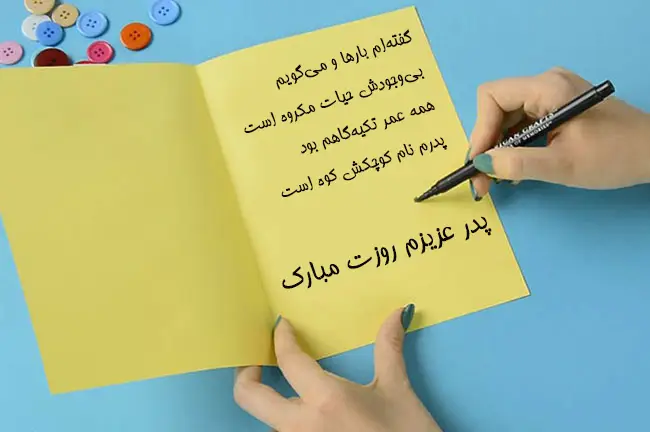 گفته‌ام بارها و می‌گویم
بی‌وجودش حیات مکروه است
همه عمر تکیه‌گاهم بود
پدرم نام کوچکش کوه است
پدر عزیزم روزت مبارک